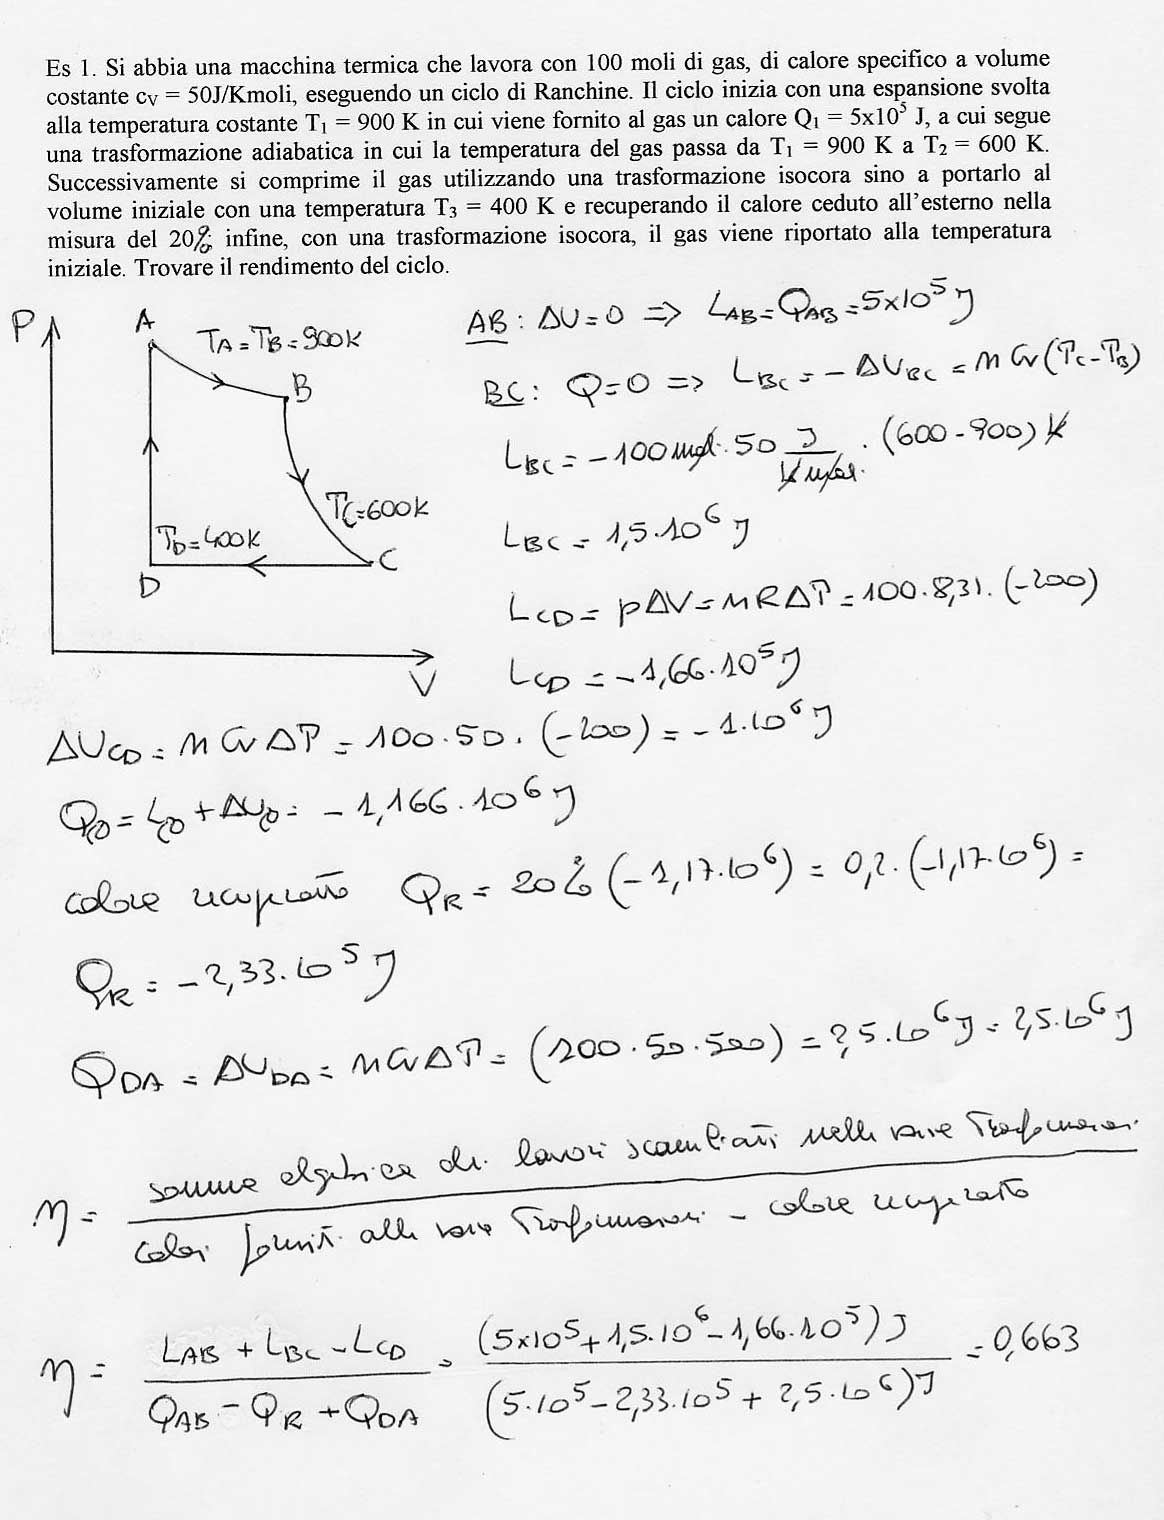 Es 1. Si abbia una macchina termica che lavora con 100 moli di gas, di calore specifico a volume
costante cV = 50J/Kmoli, eseguendo un ciclo di Ranchine. Il ciclo inizia con una espansione svolta
alla temperatura costante T1 = 900 K in cui viene fornito al gas un calore Q1 = 5x10⁵ J, a cui segue
una trasformazione adiabatica in cui la temperatura del gas passa da T1 = 900 K a T2 = 600 K.
Successivamente si comprime il gas utilizzando una trasformazione isocora sino a portarlo al
volume iniziale con una temperatura T3 = 400 K e recuperando il calore ceduto all'esterno nella
misura del 20% infine, con una trasformazione isocora, il gas viene riportato alla temperatura
iniziale. Trovare il rendimento del ciclo.
P
A
TA=TB=900K
B
TC=600K
TD=400K
C
D
V
AB: ΔU=0 => LAB=QAB=5x10⁵ J
BC: Q=0 => LBC=-ΔUBC=mCv(TC-TB)
LBC=-100mol·50 J/Kmol·(600-900)K
LBC=1,5·10⁶ J
LCD=pΔV=mRΔT=100·8,31·(-200)
LCD=-1,66·10⁵ J
ΔUCD=mCvΔT=100·50·(-200)=-1·10⁶ J
QCD=LCD+ΔUCD=-1,166·10⁶ J
calore recuperato QR=20%(-1,17·10⁶)=0,2·(-1,17·10⁶)=
QR=-2,33·10⁵ J
QDA=ΔUDA=mCvΔT=(100·50·500)=2,5·10⁶ J=2,5·10⁶ J
η= somma algebrica dei lavori scambiati nelle varie trasformazioni
calori forniti alle varie trasformazioni - calore recuperato
η= LAB+LBC-LCD / QAB-QR+QDA = (5x10⁵+1,5·10⁶-1,66·10⁵)J / (5·10⁵-2,33·10⁵+2,5·10⁶)J =0,663